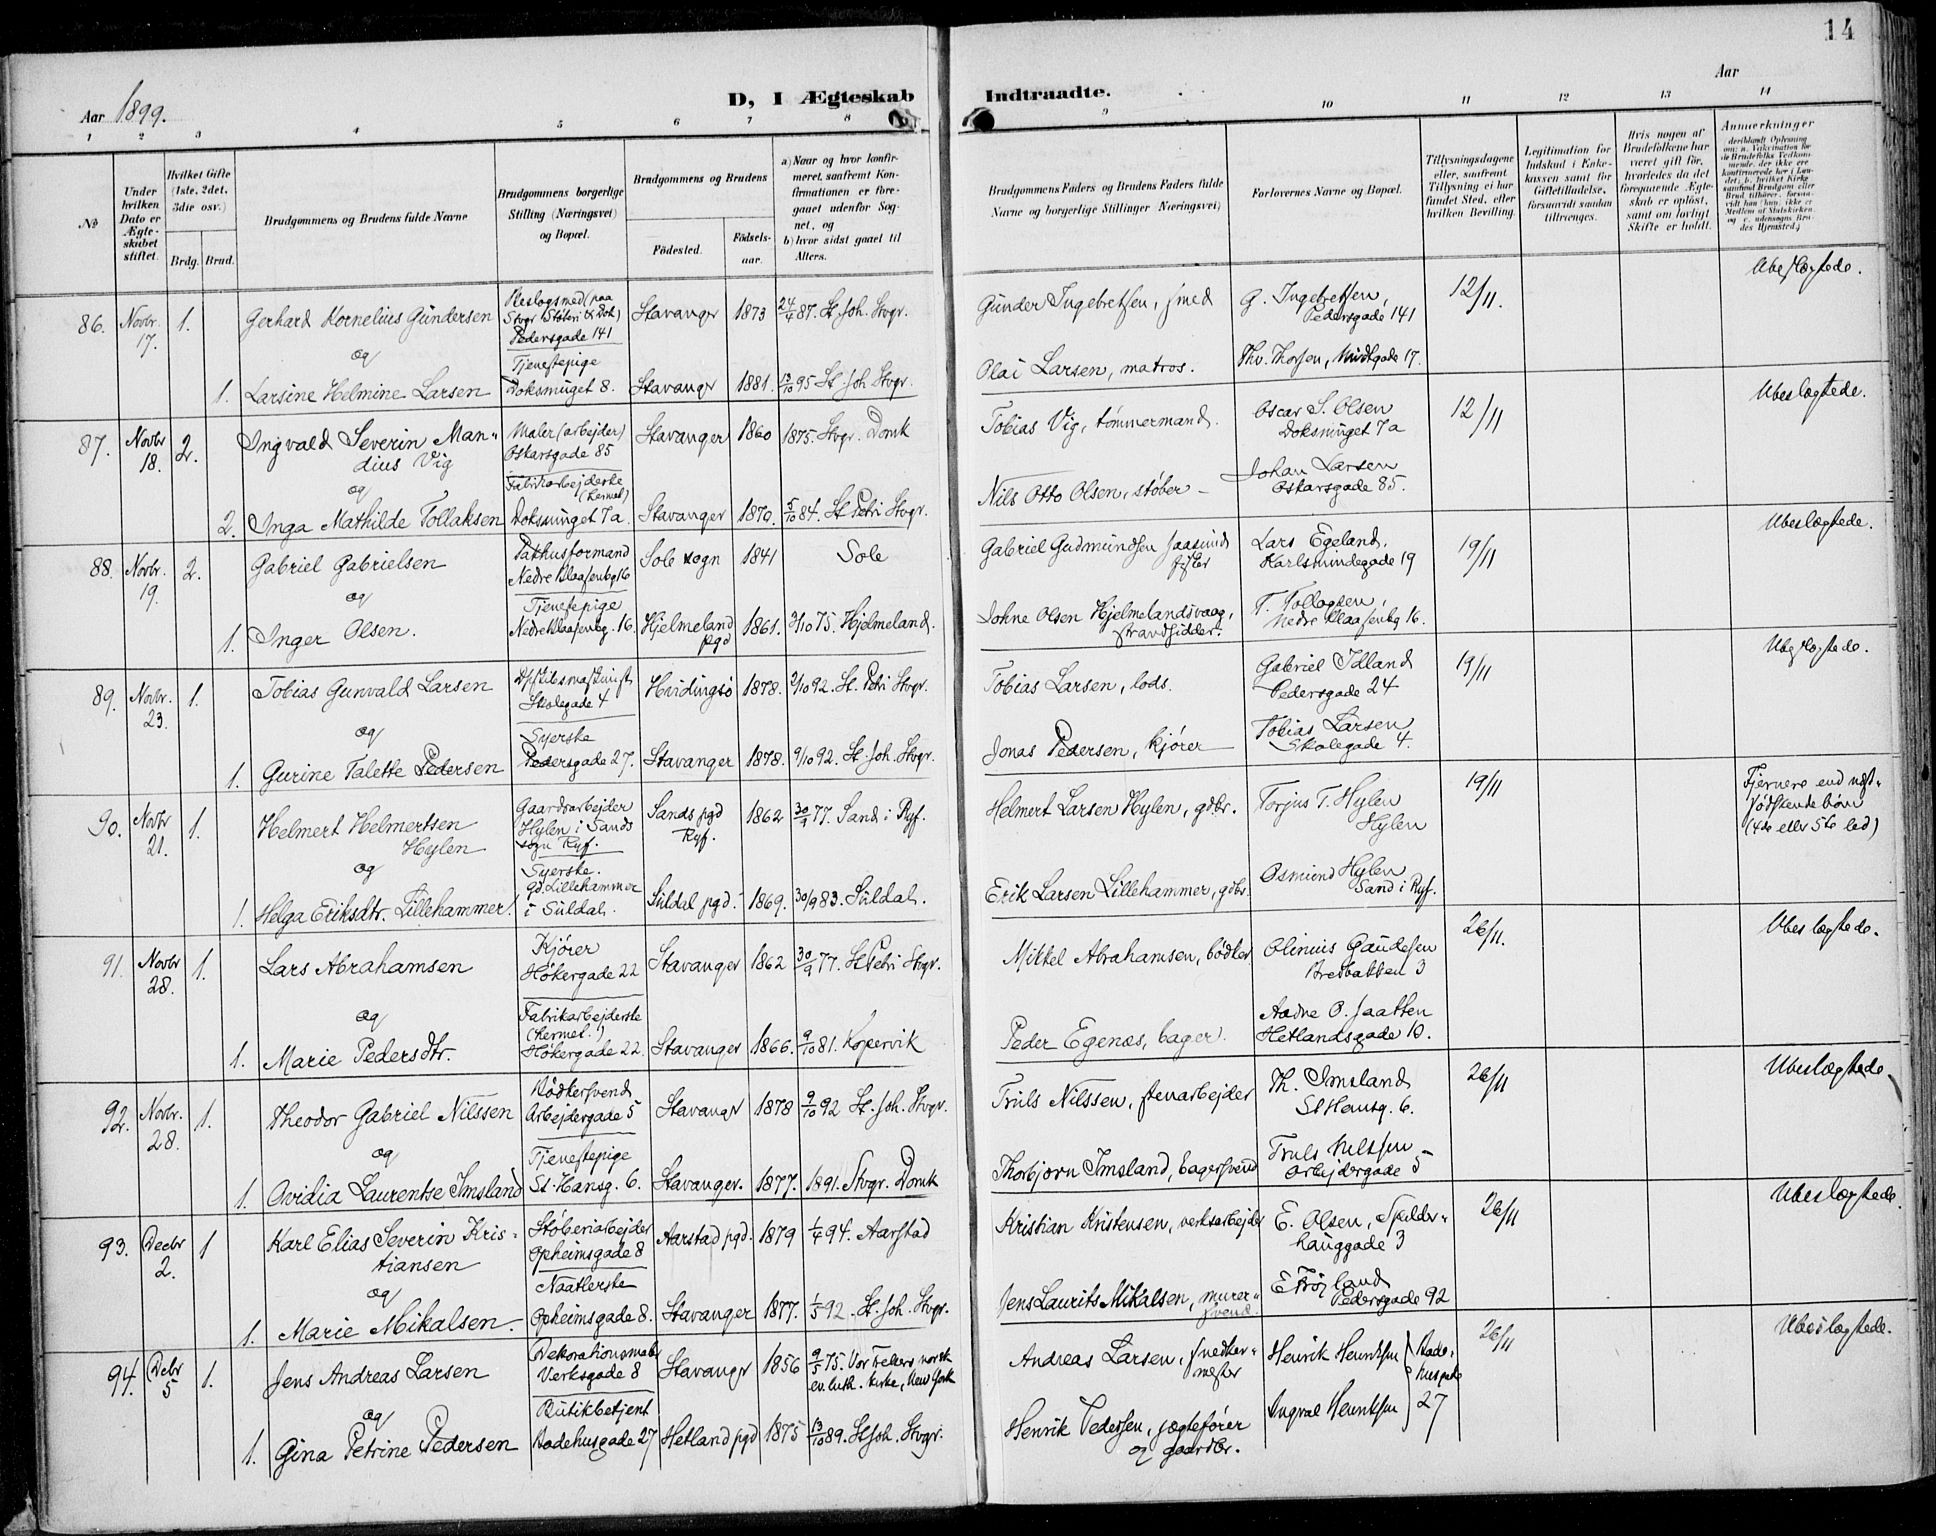 14
Aar 1899.
D, I Ægteskab Indtraadte.
Aar
1 2 3 4 5 6 7 8 9 10 11 12 13 14
No
Under hvilken Dato er Ægteskabet stiftet.
Hvilket Gifte (1ste, 2det, 3die osv.)
Brdg. Brud.
Brudgommens og Brudens fulde Navne
Brudgommens borgerlige Stilling (Næringsvei) og Bopæl.
Brudgommens og Brudens
Födested. Födselsaar.
a) Naar og hvor konfirmeret, saafremt Konfirmationen er foregaaet udenfor Sognet, og
b) hvor sidst gaaet til Alters.
Brudgommens Faders og Brudens Faders fulde Navne og borgerlige Stillinger (Næringsvei)
Forlovernes Navne og Bopæl.
Tillysningsdagene eller, saafremt Tillysning ei har fundet Sted, efter hvilken Bevilling.
Legitimation for Indskud i Enkekassen samt for Giftetilladelse, forsaavidt saadan tiltrænges.
Hvis nogen af Brudefolkene har været gift för, hvorledes da det foregaaende Ægteskab er oplöst, samt om lovligt Skifte er holdt.
Anmerkninger
86. Novbr. 17. 1. Gerhard Kornelius Gundersen
Pedersgade 141
Stavanger 1873 24/4 87. St. Joh. Stvgr.
Gunder Ingebretsen, smed
G. Ingebretsen, Pedersgade 141
12/11.
Ubeslægtede.
og
1. Larsine Helmine Larsen
Tjenestepige
Doksmuget 8.
Stavanger 1881. 13/10 95 St. Joh Stvgr.
Olai Larsen, matros.
Thv. Thorsen, Midtgade 17.
87. Novbr 18. 2. Ingvald Severin Mandius Vig
Maler (arbejder)
Oskarsgade 85
Stavanger 1860 1875. Stvgr. Domk
Tobias Vig, tømmermand.
Oscar S. Olsen
Doksmuget 7a
12/11
Ubeslægtede.
og
2. Inga Mathilde Tollaksen
Fabrikarbejderske (hermet.)
Doksmuget 7a.
Stavanger 1870. 5/10 84. St Petri Stvgr.
Nils Otto Olsen, støber
Johan Larsen
Oskarsgade 85.
88. Novbr. 19. 2. Gabriel Gabrielsen
Pakhusformand
Nedre Blaasenbg 16
Sole sogn 1841 Sole
Gabriel Gudmundsen Jaasund fisker
Lars Egeland,
Karlsmindegade 19
19/11
Ubeslægtede.
og
1. Inger Olsen.
Tjenestepige
Nedre Blaasenbg. 16.
Hjelmeland pgd 1861. 3/10 75. Hjelmeland.
Johne Olsen Hjelmelandsvaag, strandsidder.
T. Tollagsen,
Nedre Blaasenbg 16.
89. Novbr. 23. 1. Tobias Gunvald Larsen
Skolegade 4
Hvidingsö 1878. 2/10 92. St. Petri Stvgr.
Tobias Larsen, lods.
Gabriel Idland
Pedersgade 24
19/11
Ubeslægtede.
og
1. Gurine Talette Pedersen
Syerske
Pedersgade 27.
Stavanger 1878. 9/10 92. St. Joh. Stvgr.
Jonas Pedersen, kjører
Tobias Larsen
Skolegade 4.
90. Novbr 21. 1. Helmert Helmertsen Hylen
Gaardsarbejder
Hylen i Sands sogn Ryf.
Sands pgd Ryf. 1862 30/9 77. Sand i Ryf.
Helmert Larsen Hylen, gdbr.
Torjus T. Hylen
Hylen
19/11
Fjernere end næstsødskendebørn
(4de eller 5te led)
og
1. Helga Eriksdtr. Lillehammer.
Syerske.
Gd. Lillehammer
i Suldal.
Suldal pgd. 1869. 30/9 83. Suldal.
Erik Larsen Lillehammer, gdbr.
Osmund Hylen
Sand i Ryf.
91. Novbr 28. 1. Lars Abrahamsen
Kjörer
Høkergade 22
Stavanger 1862 30/9 77. St Petri Stvgr.
Mikkel Abrahamsen, bødker
Olinius Gaudesen
Bredbakken 3
26/11.
Ubeslægtede.
og
1. Marie Pedersdtr.
Fabrikarbejderske
(hermet.)
Høkergade 22.
Stavanger 1866. 9/10 81. Kopervik
Peder Egenæs, bager.
Aadne O. Jaatten
Hetlandsgade 10.
92. Novbr. 28. 1. Theodor Gabriel Nilssen
Bødkersvend
Arbejdergade 5
Stavanger 1878 9/10 92 St. Joh. Stvgr.
Truls Nilssen, stenarbejder
Th. Imsland
St Hansg. 6.
26/11
Ubeslægtede
og
1. Ovidia Laurentse Imsland
Tjenestepige
St. Hansg. 6.
Stavanger. 1877. 1891. Stvgr. Domk
Thorbjørn Imsland, bagersvend
Truls Nilssen
Arbejdergade 5
93. Decbr 2. 1 Karl Elias Severin Kristiansen
Støberiarbejder
Opheimsgade 8
Aarstad pgd. 1879 1/4 94. Aarstad
Kristian Kristensen, verksarbejder
E. Olsen, Spilderhauggade 3
26/11
Ubeslægtede
og
1. Marie Mikalsen.
Naatlerske
Opheimsgade 8.
Stavanger 1877. 1/5 92. St. Joh. Stvgr.
Jens Laurits Mikalsen, murersvend.
Pedersgade 92
94. Decbr 5 1. Jens Andreas Larsen
Dekorationsmaler
Verksgade 8
Stavanger 1856 9/5 75. Vor Frelsers norsk ev. luth. kirke, New York
Andreas Larsen, snedkermester
Henrik Henriksen
26/11
Ubeslægtede.
og
1. Gina Petrine Pedersen
Butikbetjent
Raadehusgade 27
Hetland pgd 1875 13/10 89. St Joh. Stvgr.
Henrik Pedersen, jægtefører og gaardbr.
Ingval Henriksen
27